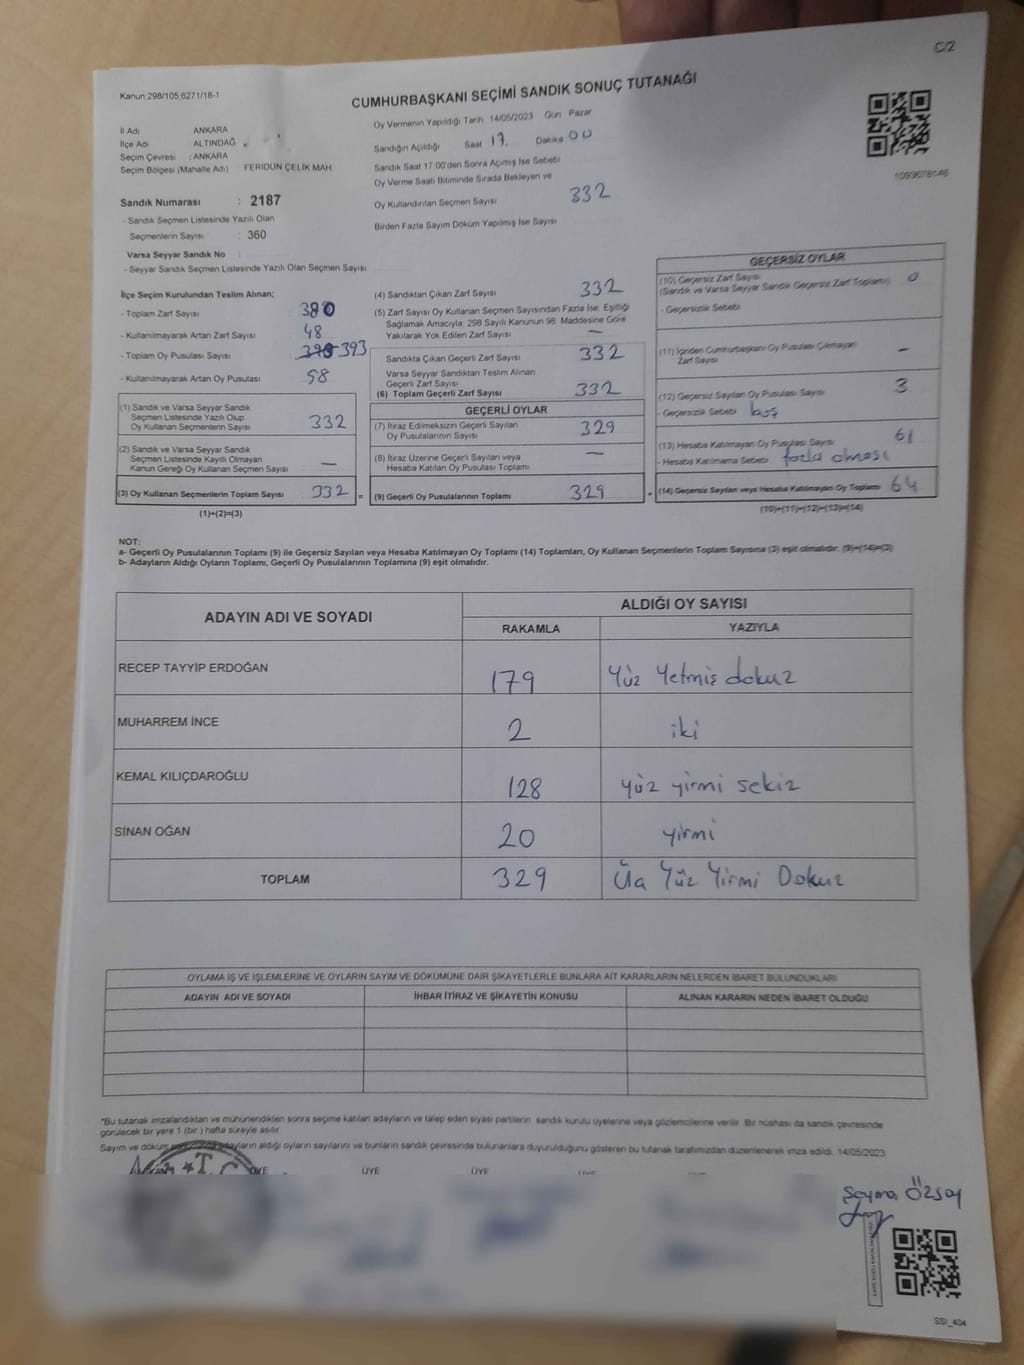 C/2
Kanun 298/105,6271/18-1
CUMHURBAŞKANI SEÇİMİ SANDIK SONUÇ TUTANAĞI
İl Adı ANKARA
İlçe Adı ALTINDAĞ
Seçim Çevresi : ANKARA
Seçim Bölgesi (Mahalle Adı) FERİDUN ÇELİK MAH
Sandık Numarası : 2187
- Sandık Seçmen Listesinde Yazılı Olan
Seçmenlerin Sayısı : 360
Varsa Seyyar Sandık No :
- Seyyar Sandık Seçmen Listesinde Yazılı Olan Seçmen Sayısı
Oy Vermenin Yapıldığı Tarih 14/05/2023 Gün Pazar
Sandığın Açıldığı Saat 17 Dakika 00
Sandık Saat 17.00'den Sonra Açımış İse Sebebi
Oy Verme Saati Bitiminde Sırada Bekleyen ve
Oy Kullandırılan Seçmen Sayısı 332
Birden Fazla Sayım Döküm Yapılmış İse Sayısı
İlçe Seçim Kurulundan Teslim Alınan;
- Toplam Zarf Sayısı 380
- Kullanılmayarak Artan Zarf Sayısı 48
- Toplam Oy Pusulası Sayısı 393
- Kullanılmayarak Artan Oy Pusulası 58
(1) Sandık ve Varsa Seyyar Sandık
Seçmen Listesinde Yazılı Olup
Oy Kullanan Seçmenlerin Sayısı 332
(2) Sandık ve Varsa Seyyar Sandık
Seçmen Listesinde Kayıtlı Olmayan
Kanun Gereği Oy Kullanan Seçmen Sayısı —
(3) Oy Kullanan Seçmenlerin Toplam Sayısı 332 =
(1)+(2)=(3)
(4) Sandıktan Çıkan Zarf Sayısı 332
(5) Zarf Sayısı Oy Kullanan Seçmen Sayısından Fazla İse, Eşitliği
Sağlamak Amacıyla; 298 Sayılı Kanunun 98. Maddesine Göre
Yakılarak Yok Edilen Zarf Sayısı —
Sandıkta Çıkan Geçerli Zarf Sayısı 332
Varsa Seyyar Sandıktan Teslim Alınan
Geçerli Zarf Sayısı
(6) Toplam Geçerli Zarf Sayısı 332
GEÇERLİ OYLAR
(7) İtiraz Edilmeksizin Geçerli Sayılan
Oy Pusulalarının Sayısı 329
(8) İtiraz Üzerine Geçerli Sayılan veya
Hesaba Katılan Oy Pusulası Toplamı —
(9) Geçerli Oy Pusulalarının Toplamı 329 +
GEÇERSİZ OYLAR
(10) Geçersiz Zarf Sayısı 0
(Sandık ve Varsa Seyyar Sandık Geçersiz Zarf Toplamı)
- Geçersizlik Sebebi
(11) İçinden Cumhurbaşkanı Oy Pusulası Çıkmayan
Zarf Sayısı —
(12) Geçersiz Sayılan Oy Pusulası Sayısı 3
- Geçersizlik Sebebi boş
(13) Hesaba Katılmayan Oy Pusulası Sayısı 61
- Hesaba Katılmama Sebebi fazla olması
(14) Geçersiz Sayılan veya Hesaba Katılmayan Oy Toplamı 64
(10)+(11)+(12)+(13)=(14)
NOT:
a- Geçerli Oy Pusulalarının Toplamı (9) ile Geçersiz Sayılan veya Hesaba Katılmayan Oy Toplamı (14) Toplamları, Oy Kullanan Seçmenlerin Toplam Sayısına (3) eşit olmalıdır. (9)+(14)=(3)
b- Adayların Aldığı Oyların Toplamı, Geçerli Oy Pusulalarının Toplamına (9) eşit olmalıdır.
ADAYIN ADI VE SOYADI ALDIĞI OY SAYISI
RAKAMLA YAZIYLA
RECEP TAYYİP ERDOĞAN 179 Yüz Yetmiş dokuz
MUHARREM İNCE 2 iki
KEMAL KILIÇDAROĞLU 128 yüz yirmi sekiz
SİNAN OĞAN 20 yirmi
TOPLAM 329 Üç Yüz Yirmi Dokuz
OYLAMA İŞ VE İŞLEMLERİNE VE OYLARIN SAYIM VE DÖKÜMÜNE DAİR ŞİKAYETLERLE BUNLARA AİT KARARLARIN NELERDEN İBARET BULUNDUKLARI
ADAYIN ADI VE SOYADI İHBAR İTİRAZ VE ŞİKAYETİN KONUSU ALINAN KARARIN NEDEN İBARET OLDUĞU
*Bu tutanak imzalandıktan ve mühürlendikten sonra seçime katılan adayların ve talep eden siyasi partilerin sandık kurulu üyelerine veya gözlemcilerine verilir. Bir nüshası da sandık çevresinde
görülecek bir yere 1 (bir) hafta süreyle asılır.
Sayım ve döküm adayların aldığı oyların sayılarını ve bunların sandık çevresinde bulunanlara duyurulduğunu gösteren bu tutanak tarafımızdan düzenlenerek imza edildi. 14/05/2023
T.C. ÜYE ÜYE ÜYE
Şeyma ÖZSOY
SSI_404